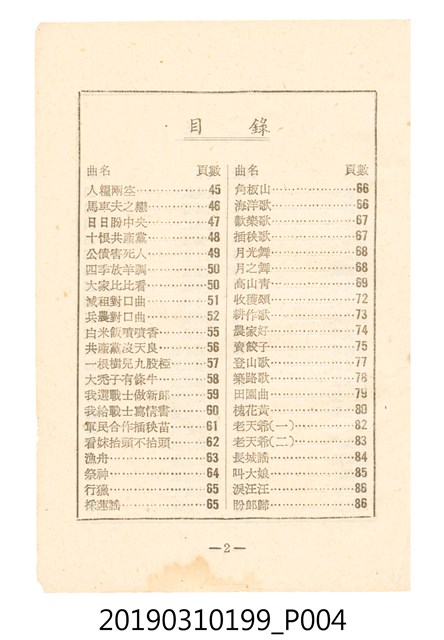 目錄
曲名 頁數
人糧兩空 45
馬車夫之戀 46
日日盼中央 47
十恨共產黨 48
公債害死人 49
四季放羊調 50
大家比比看 50
減租對口曲 51
兵農對口曲 52
白米飯噴噴香 55
共產黨沒天良 56
一根樹兒九股椏 57
大禿子有條牛 58
我選戰士做新郎 59
我給戰士寫情書 60
軍民合作插秧苗 61
看妹抬頭不抬頭 62
漁舟 63
祭神 64
行獵 65
採蓮謠 65
曲名 頁數
角板山 66
海洋歌 66
歡樂歌 67
插秧歌 67
月光舞 68
月之舞 68
高山青 69
收穫頌 72
耕作歌 73
農家好 74
賣餃子 75
登山歌 77
築路歌 78
田園曲 79
槐花黃 80
老天爺(一) 82
老天爺(二) 83
長城謠 84
叫大娘 85
淚汪汪 86
盼郎歸 86
—2—
20190310199_P004